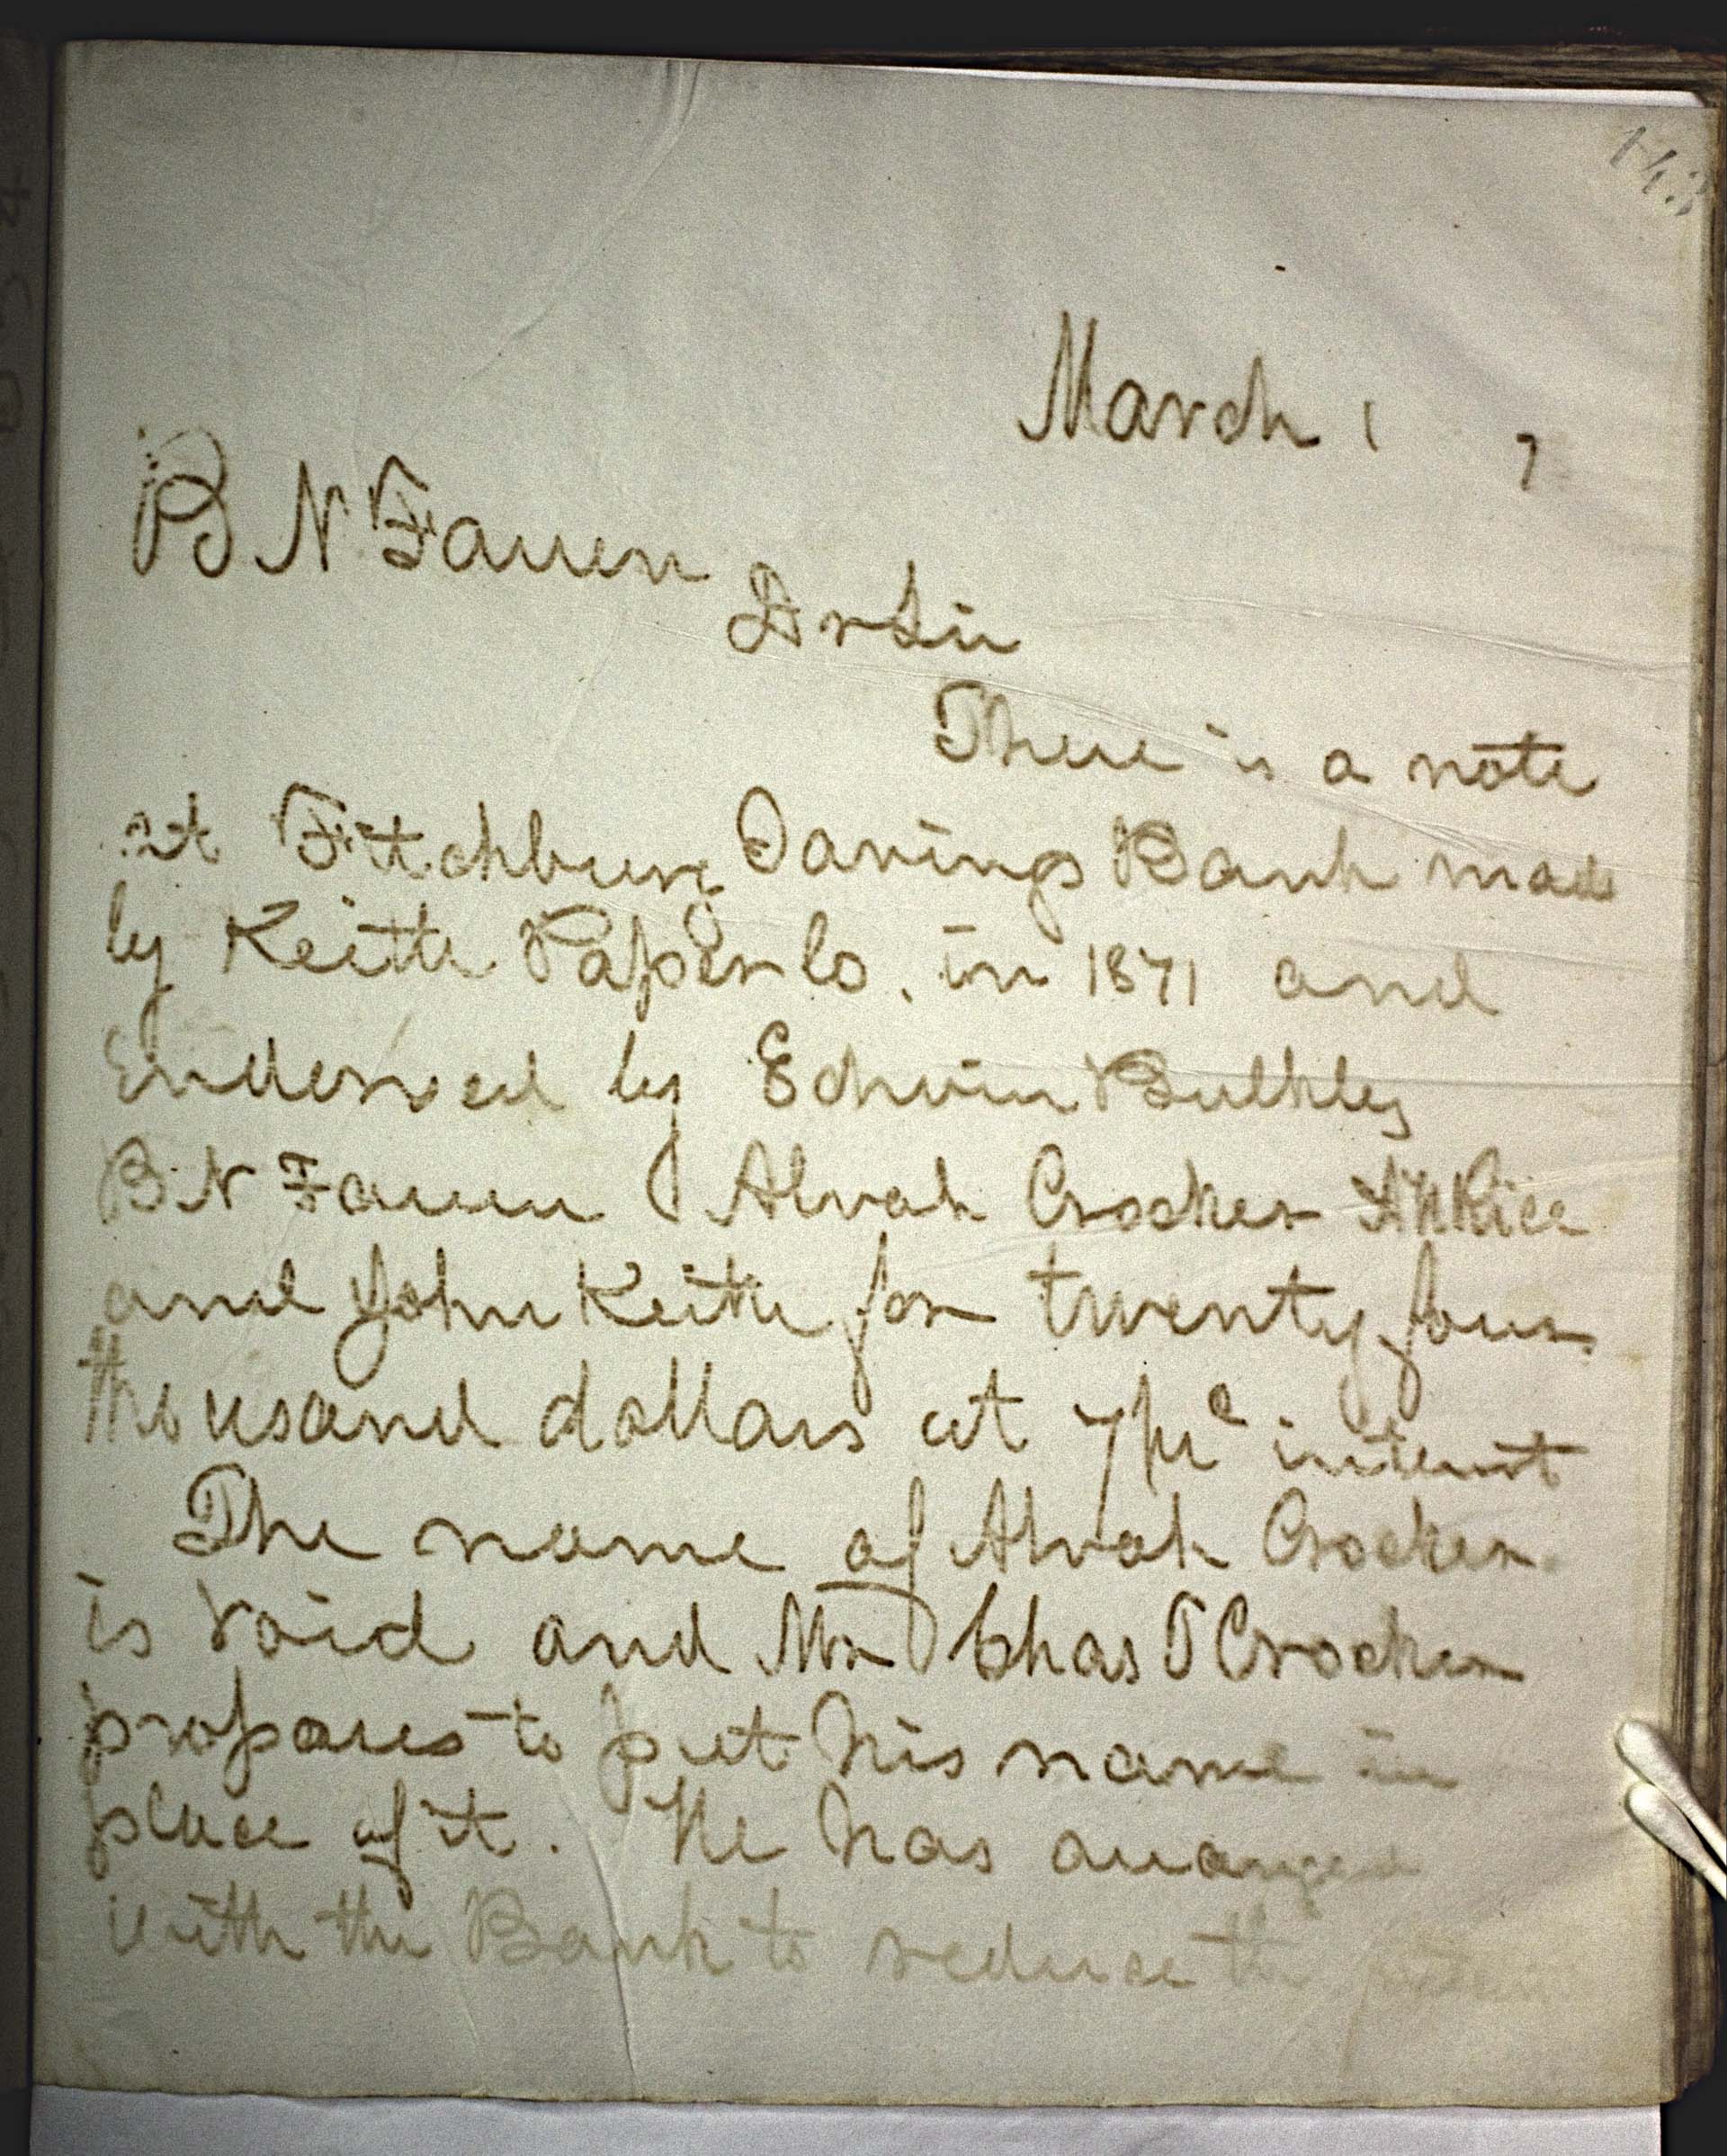 143
March 1 7
B N Farren
Dr Sir
There is a note
at Fitchburg Savings Bank made
by Keith Paper Co. in 1871 and
Endorsed by Edwin Bulkley
B N Farren Alvah Crocker
and John Keith for twenty four
thousand dollars at 7 pr c interest
The name of Alvah Crocker
is void and Mr Chas T Crocker
proposes to put his name in
place of it. He has arranged
with the Bank to reduce the